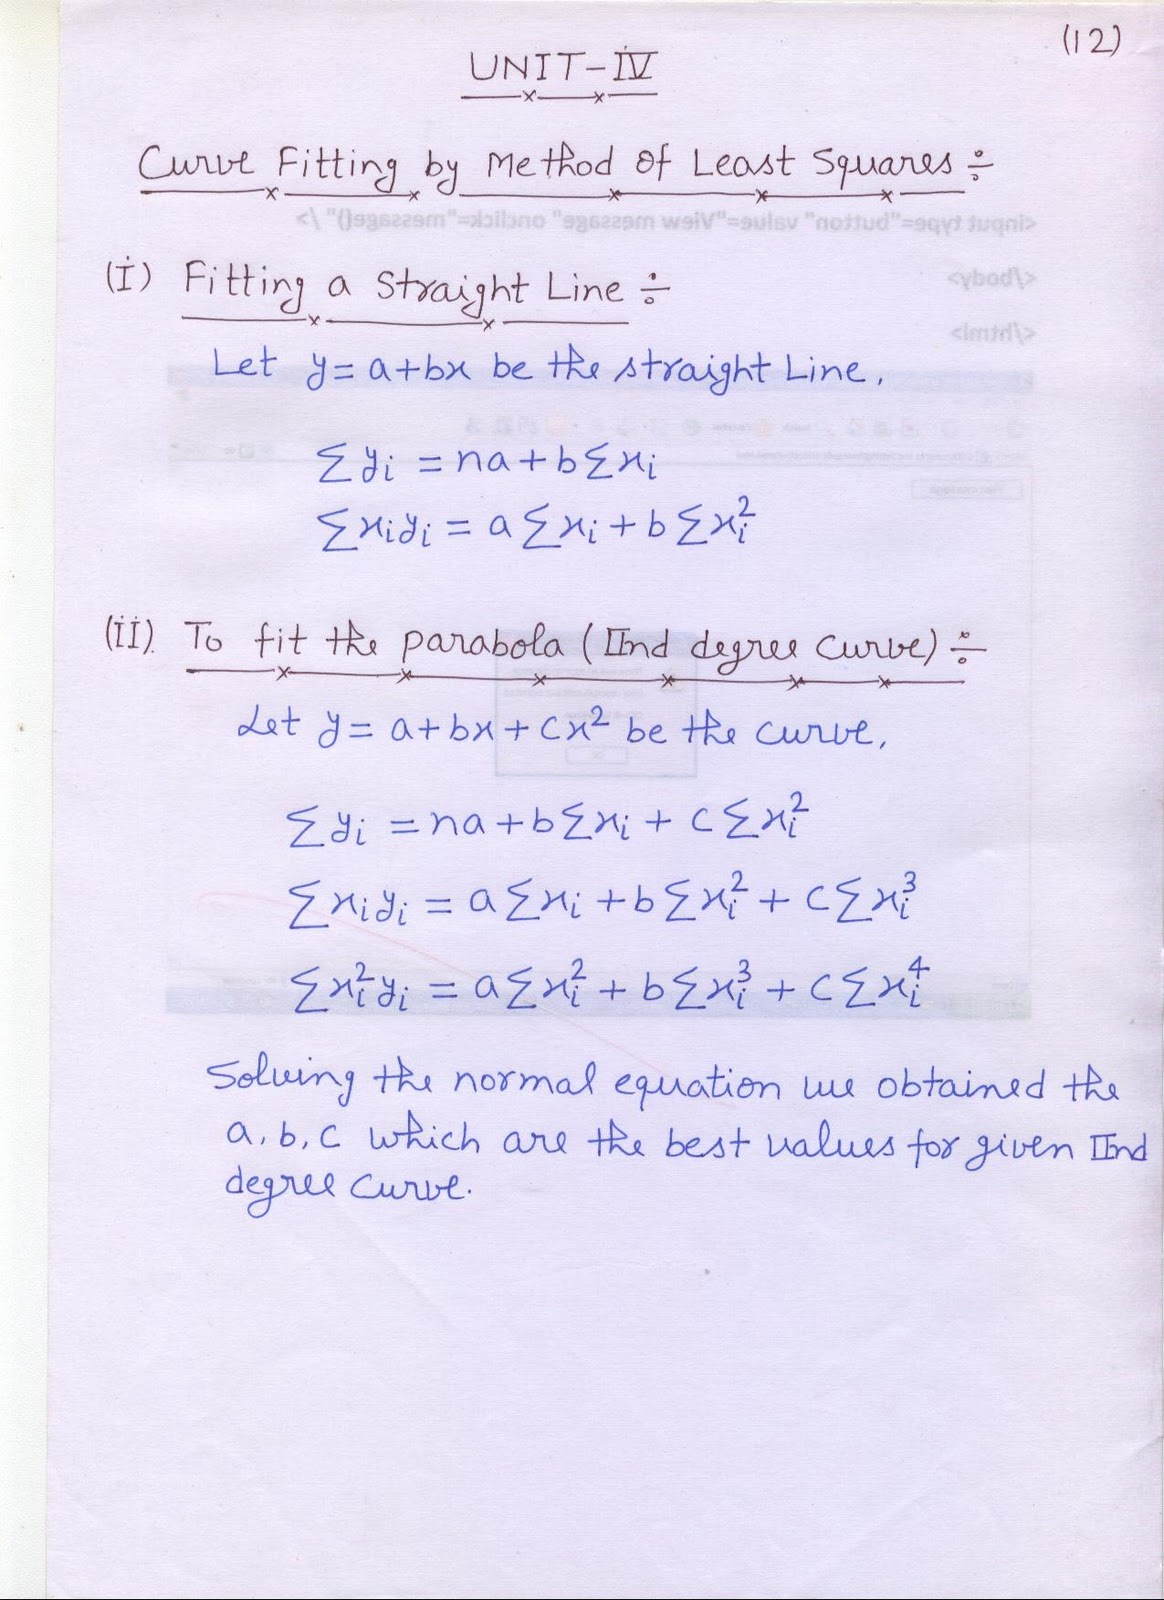 (12)
UNIT-IV
Curve Fitting by Method of Least Squares ÷
<input type="button" value="View message" onclick="message()" />
</body>
</html>
(I) Fitting a Straight Line ÷
Let y = a+bx be the straight Line,
∑yi = na+b∑xi
∑xiyi = a∑xi + b∑xi²
(II) To fit the parabola (IInd degree curve) ÷
Let y = a+bx+cx² be the curve,
∑yi = na+b∑xi + c∑xi²
∑xiyi = a∑xi + b∑xi² + c∑xi³
∑xi²yi = a∑xi² + b∑xi³ + c∑xi⁴
Solving the normal equation we obtained the
a, b, c which are the best values for given IInd
degree curve.